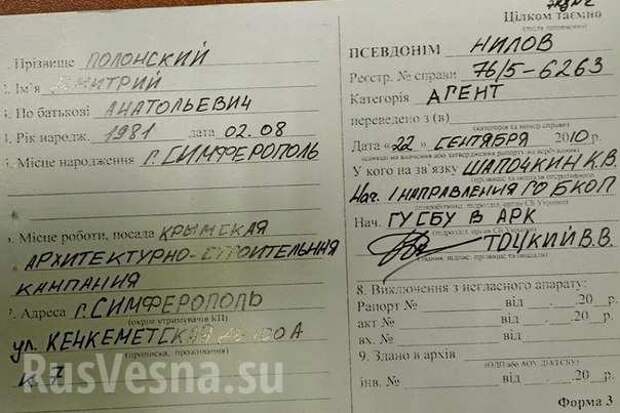 1. Прізвище ПОЛОНСКИЙ
2. Ім'я ДМИТРИЙ
3. По батькові АНАТОЛЬЕВИЧ
4. Рік народж. 1981 дата 02.08
5. Місце народження Г. СИМФЕРОПОЛЬ
6. Місце роботи, посада КРЫМСКАЯ
АРХИТЕКТУРНО-СТРОИТЕЛЬНАЯ
КАМПАНИЯ
7. Адреса Г. СИМФЕРОПОЛЬ
(окрім утримувачів КП)
УЛ. КЕЧКЕМЕТСКАЯ 100 А
(прописка, проживання)
К. 7
Цілком таємно
ПСЕВДОНІМ НИЛОВ
Реєстр. № справи 76/5-6263
Категорія АГЕНТ
переведено з (в)
Дата «22» СЕНТЯБРЯ 2010 р.
У кого на зв'язку ШАПОЧКИН К.В.
НАЧ. 1 НАПРАВЛЕНИЯ ГО БКОП
Нач. ГУ СБУ В АРК
ТОЦКИЙ В.В.
8. Виключення з негласного апарату:
Рапорт № від 20 р.
акт № від 20 р.
вх. № від 20 р.
9. Здано в архів
інв. № від 20 р.
Форма 3
RusVesna.su